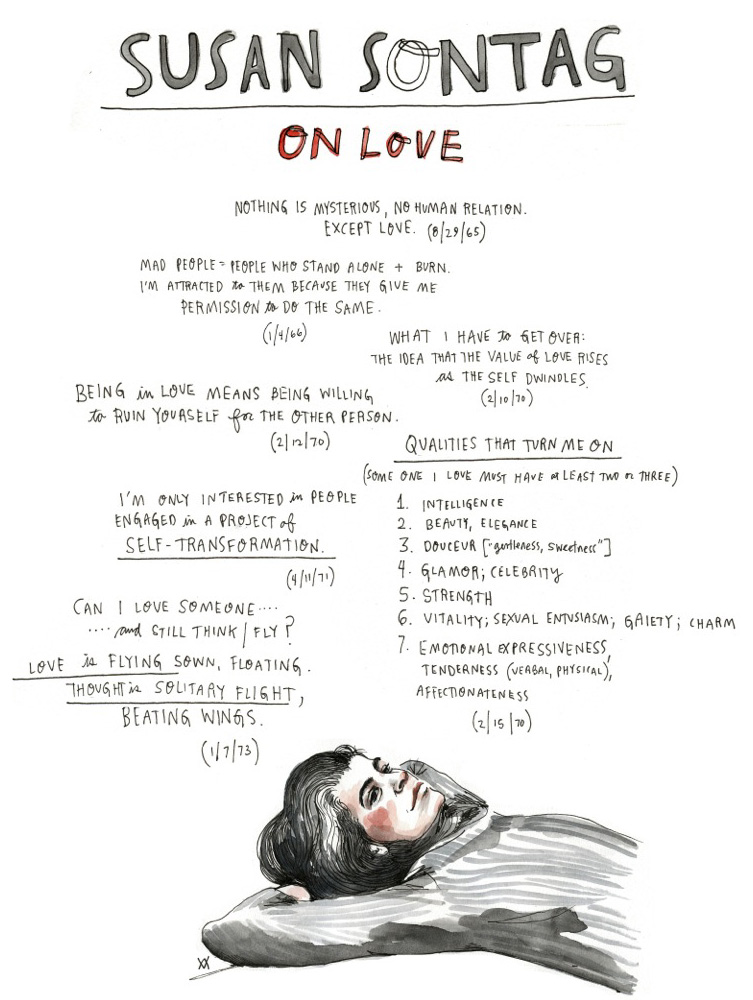 SUSAN SONTAG
ON LOVE
NOTHING IS MYSTERIOUS, NO HUMAN RELATION.
EXCEPT LOVE. (8/29/65)
MAD PEOPLE = PEOPLE WHO STAND ALONE + BURN.
I'M ATTRACTED to THEM BECAUSE THEY GIVE ME
PERMISSION to DO THE SAME.
(1/4/66)
WHAT I HAVE to GET OVER:
THE IDEA THAT THE VALUE of LOVE RISES
as THE SELF DWINDLES.
(2/10/70)
BEING in LOVE MEANS BEING WILLING
to RUIN YOURSELF for THE OTHER PERSON.
(2/12/70)
QUALITIES THAT TURN ME ON
(SOME ONE I LOVE MUST HAVE at LEAST TWO or THREE)
1. INTELLIGENCE
2. BEAUTY, ELEGANCE
3. DOUCEUR ["gentleness, sweetness"]
4. GLAMOR; CELEBRITY
5. STRENGTH
6. VITALITY; SEXUAL ENTUSIASM; GAIETY; CHARM
7. EMOTIONAL EXPRESSIVENESS,
TENDERNESS (VERBAL, PHYSICAL),
AFFECTIONATENESS
(2/15/70)
I'M ONLY INTERESTED in PEOPLE
ENGAGED in A PROJECT of
SELF-TRANSFORMATION.
(4/11/71)
CAN I LOVE SOMEONE....
....and STILL THINK/FLY?
LOVE is FLYING SOWN, FLOATING.
THOUGHT is SOLITARY FLIGHT,
BEATING WINGS.
(1/7/73)